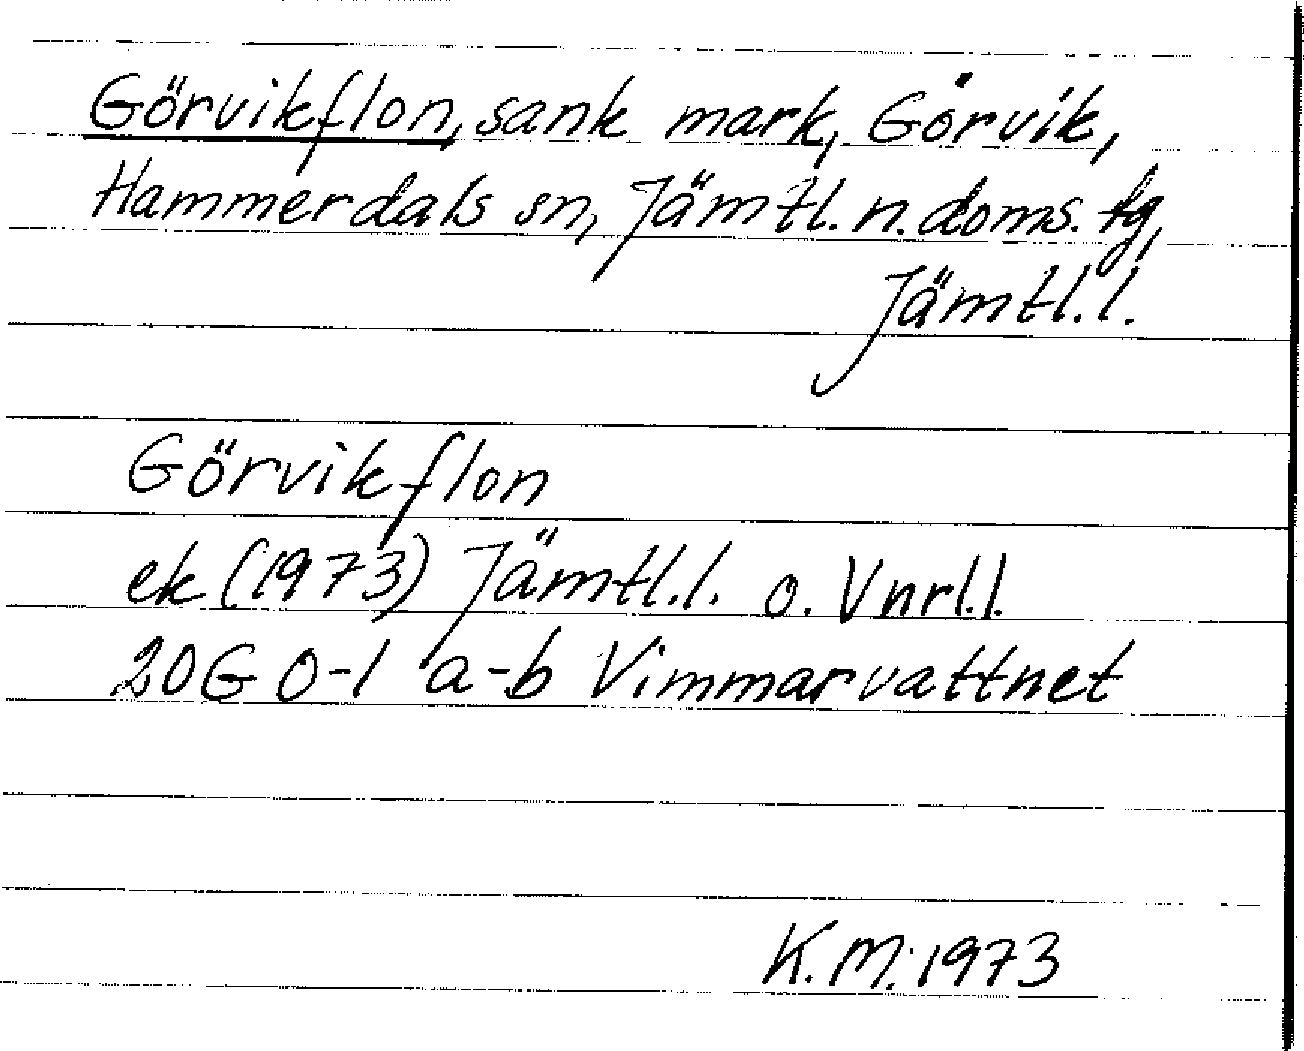 Görvikflon, sank mark, Görvik,
Hammerdals sn, Jämtl. n. doms. tg,
Jämtl. l.
Görvikflon
ek (1973) Jämtl. l. o. Vnrl. l.
20G 0-1 a-b Vimmarvattnet
K. M. 1973